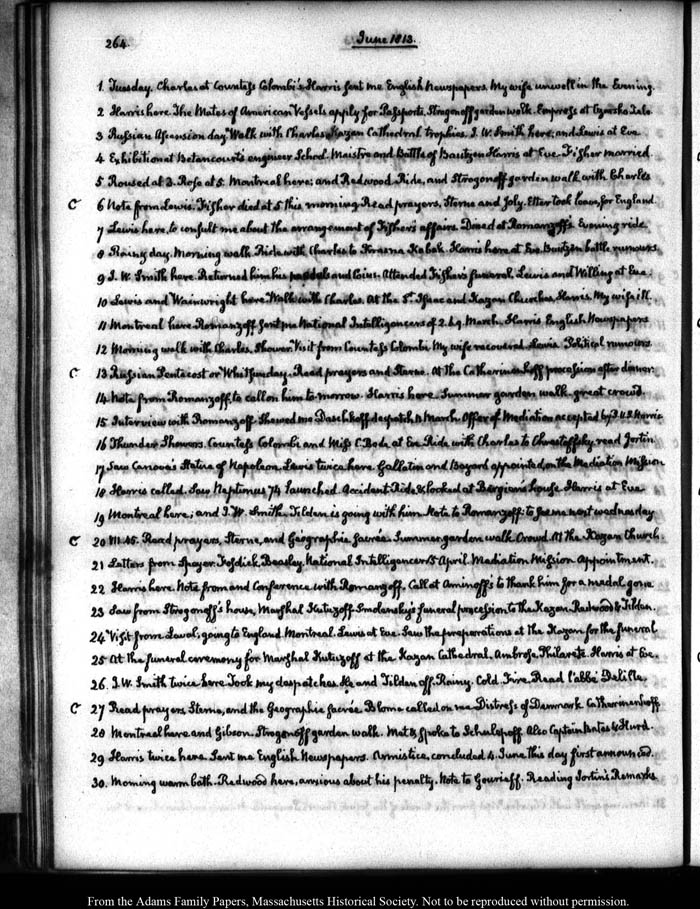 264. June 1813.
1. Tuesday. Charles at Countess Colombi's. Harris sent me English Newspapers. My wife unwell in the Evening.
2 Harris here. The Mates of American Vessels apply for Passports. Strogonoff garden walk. Empress at Czarsko Zelo
3 Russian Ascension day. Walk with Charles. Kazan Cathedral trophies. J. W. Smith here, and Lewis at Eve.
4 Exhibition at Betancourt's engineer School. Maistre and Battle of Bautzen. Harris at Eve. Fisher married.
5 Roused at 3. Rose at 5. Montreal here; and Redwood. Ride, and Strogonoff garden walk with Charles
C 6 Note from Lewis. Fisher died at 5 this morning. Read prayers, Sterne and Joly. Etter took leave, for England.
7 Lewis here, to consult me about the arrangement of Fisher's affairs. Dined at Romanzoff's. Evening ride.
8 Rainy day. Morning walk. Ride with Charles to Krasna Kabak. Harris here at Eve. Bautzen battle rumours.
9 J. W. Smith here. Returned him his and Coins. Attended Fisher's funeral. Lewis and Willing at Eve.
10 Lewis and Wainwright here. Walk with Charles. At the St. Isaac and Kazan Churches. Harris. My wife ill.
11 Montreal here. Romanzoff sent me National Intelligencers of 2. & 9. March. Harris. English Newspapers
12 Morning walk with Charles. Shower. Visit from Countess Colombi. My wife recovered. Lewis. Political rumours
C 13 Russian Pentecost or Whitsunday. Read prayers and Sterne. At the Catherinenhoff procession after dinner.
14 Note from Romanzoff to call on him to-morrow. Harris here. Summer garden walk. great crowd.
15 Interview with Romanzoff. Shewed me Daschkoff despatch March. Offer of Mediation accepted by P. U.S. Harris
16 Thunder Showers. Countess Colombi and Miss C. Bode at Eve. Ride with Charles to read Jortin
17 Saw Canova's Statue of Napoleon. Lewis twice here. Gallatin and Bayard appointed on the Mediation Mission
18 Harris called. Saw Neptunus 74 launched. Accident. Ride & looked at Bergien's house. Harris at Eve
19 Montreal here; and J. W. Smith. Tilden is going with him. Note to Romanzoff: to see me next wednesday
C 20 M. 45. Read prayers, Sterne, and Géographie Sacrée. Summer garden walk. Crowd. At the Kazan Church.
21 Letters from Speyer, Fosdick, Beasley. National Intelligencer 15 April. Mediation Mission Appointment.
22 Harris here. Note from and Conference with Romanzoff. Call at Aminoff's to thank him for a medal. gone
23 Saw from Strogonoff's house, Marshal Kutuzoff Smolensky's funeral procession to the Kazan. Redwood & Tilden.
24 Visit from Laval; going to England. Montreal. Lewis at Eve. Saw the preparations at the Kazan for the funeral
25 At the funeral ceremony for Marshal Kutuzoff at the Kazan Cathedral. Ambrose, Philarete. Harris at Eve.
26. J. W. Smith twice here. Took my despatches. He and Tilden off. Rainy. Cold. Fire. Read l'abbé Delille.
C 27 Read prayers, Sterne, and the Geographie Sacrée. Blome called on me. Distress of Denmark. Catherinenhoff
28 Montreal here and Gibson. Strogonoff garden walk. Met & spoke to Schulepoff. Also Captain Bates & Hurd.
29 Harris twice here. Sent me English Newspapers. Armistice, concluded 4. June this day first announced.
30. Morning warm bath. Redwood here, anxious about his penalty. Note to Gourieff. Reading Jortin's Remarks
From the Adams Family Papers, Massachusetts Historical Society. Not to be reproduced without permission.